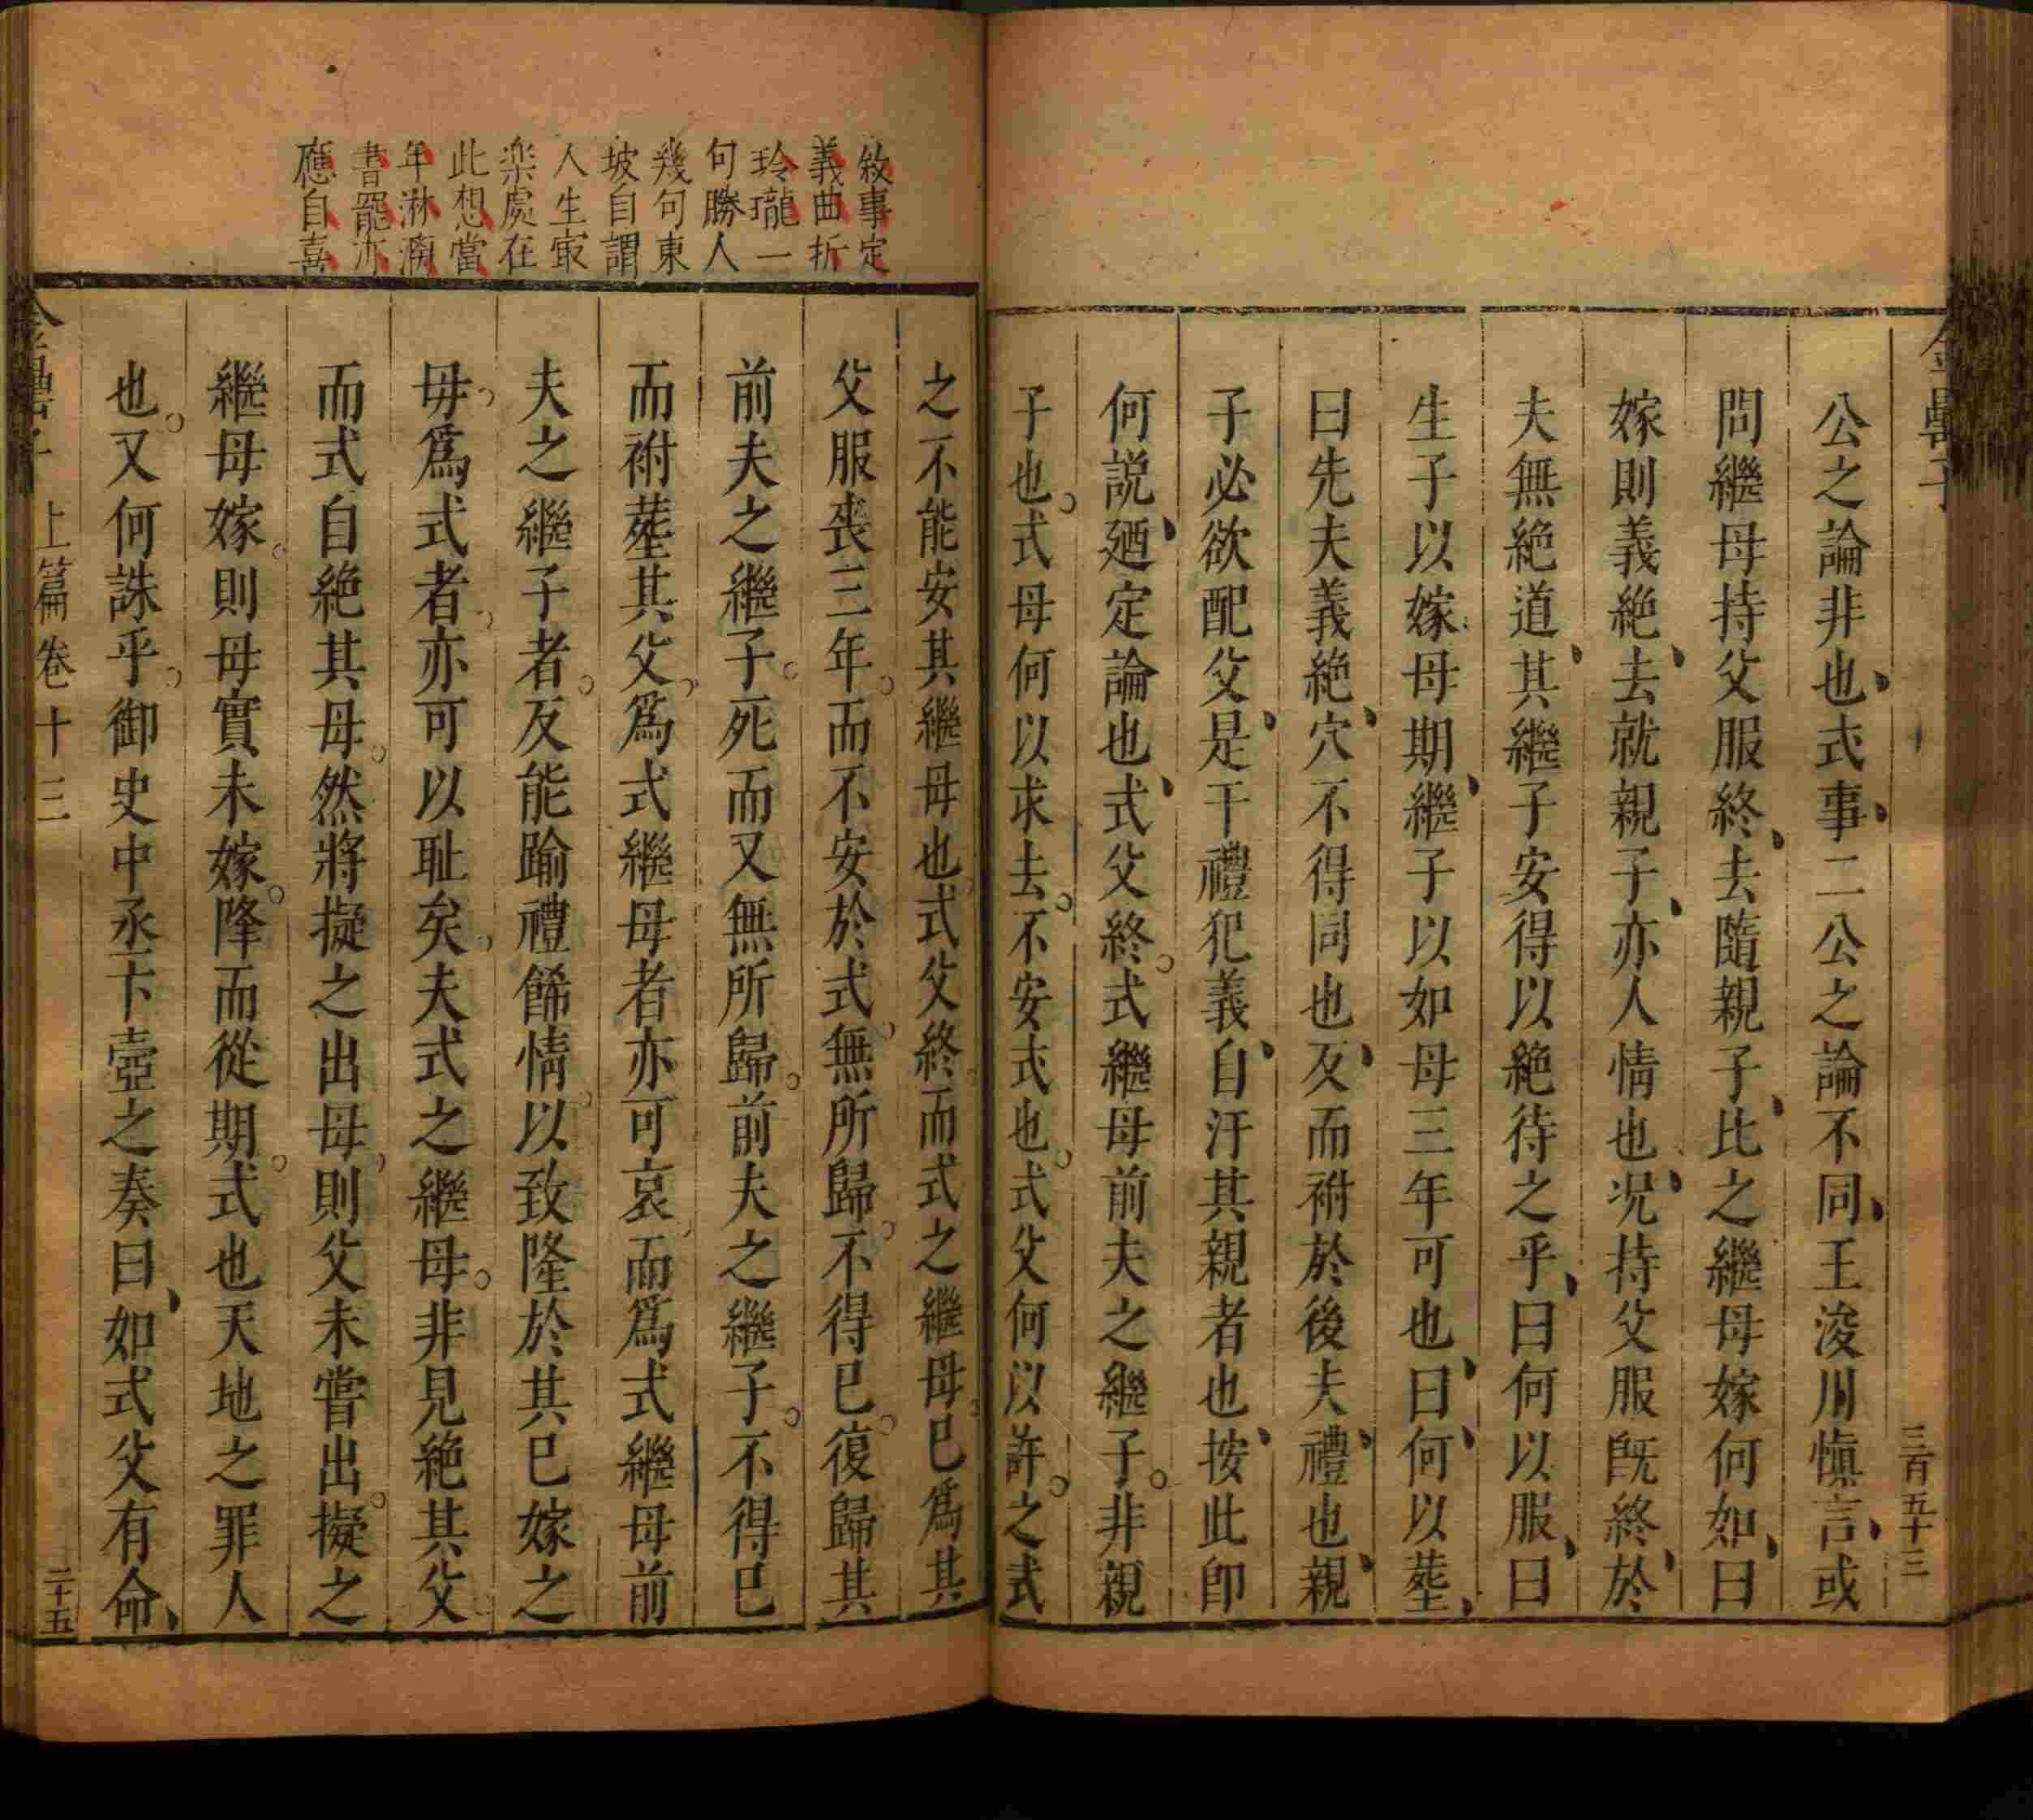 三百五十三
公之論非也式事二公之論不同王浚川愼言或
問繼母持父服終去隨親子比之繼母嫁何如曰
嫁則義絶去就親子亦人情也况持父服旣終於
夫無絶道其繼子安得以絶待之乎曰何以服曰
生子以嫁母期繼子以如母三年可也曰何以塟
曰先夫義絶穴不得同也反而祔於後夫禮也親
子必欲配父是干禮犯義自汙其親者也按此卽
何説廼定論也式父終式繼母前夫之繼子非親
子也式母何以求去不安式也式父何以許之式
敘事定
義曲折
玲瓏一
句勝人
幾句東
坡自謂
人生㝡
楽處在
此想當
年淋漓
書罷亦
應自喜
之不能安其繼母也式父終而式之繼母已爲其
父服喪三年而不安於式無所歸不得已復歸其
前夫之繼子死而又無所歸前夫之繼子不得已
而祔塟其父爲式繼母者亦可哀而爲式繼母前
夫之繼子者反能踰禮餙情以致隆於其已嫁之
母爲式者亦可以耻矣夫式之繼母非見絶其父
而式自絶其母然將擬之出母則父未嘗出擬之
繼母嫁則母實未嫁降而從期式也天地之罪人
也又何誅乎御史中丞卞壼之奏曰如式父有命
金罍子 上篇卷十三 二十五